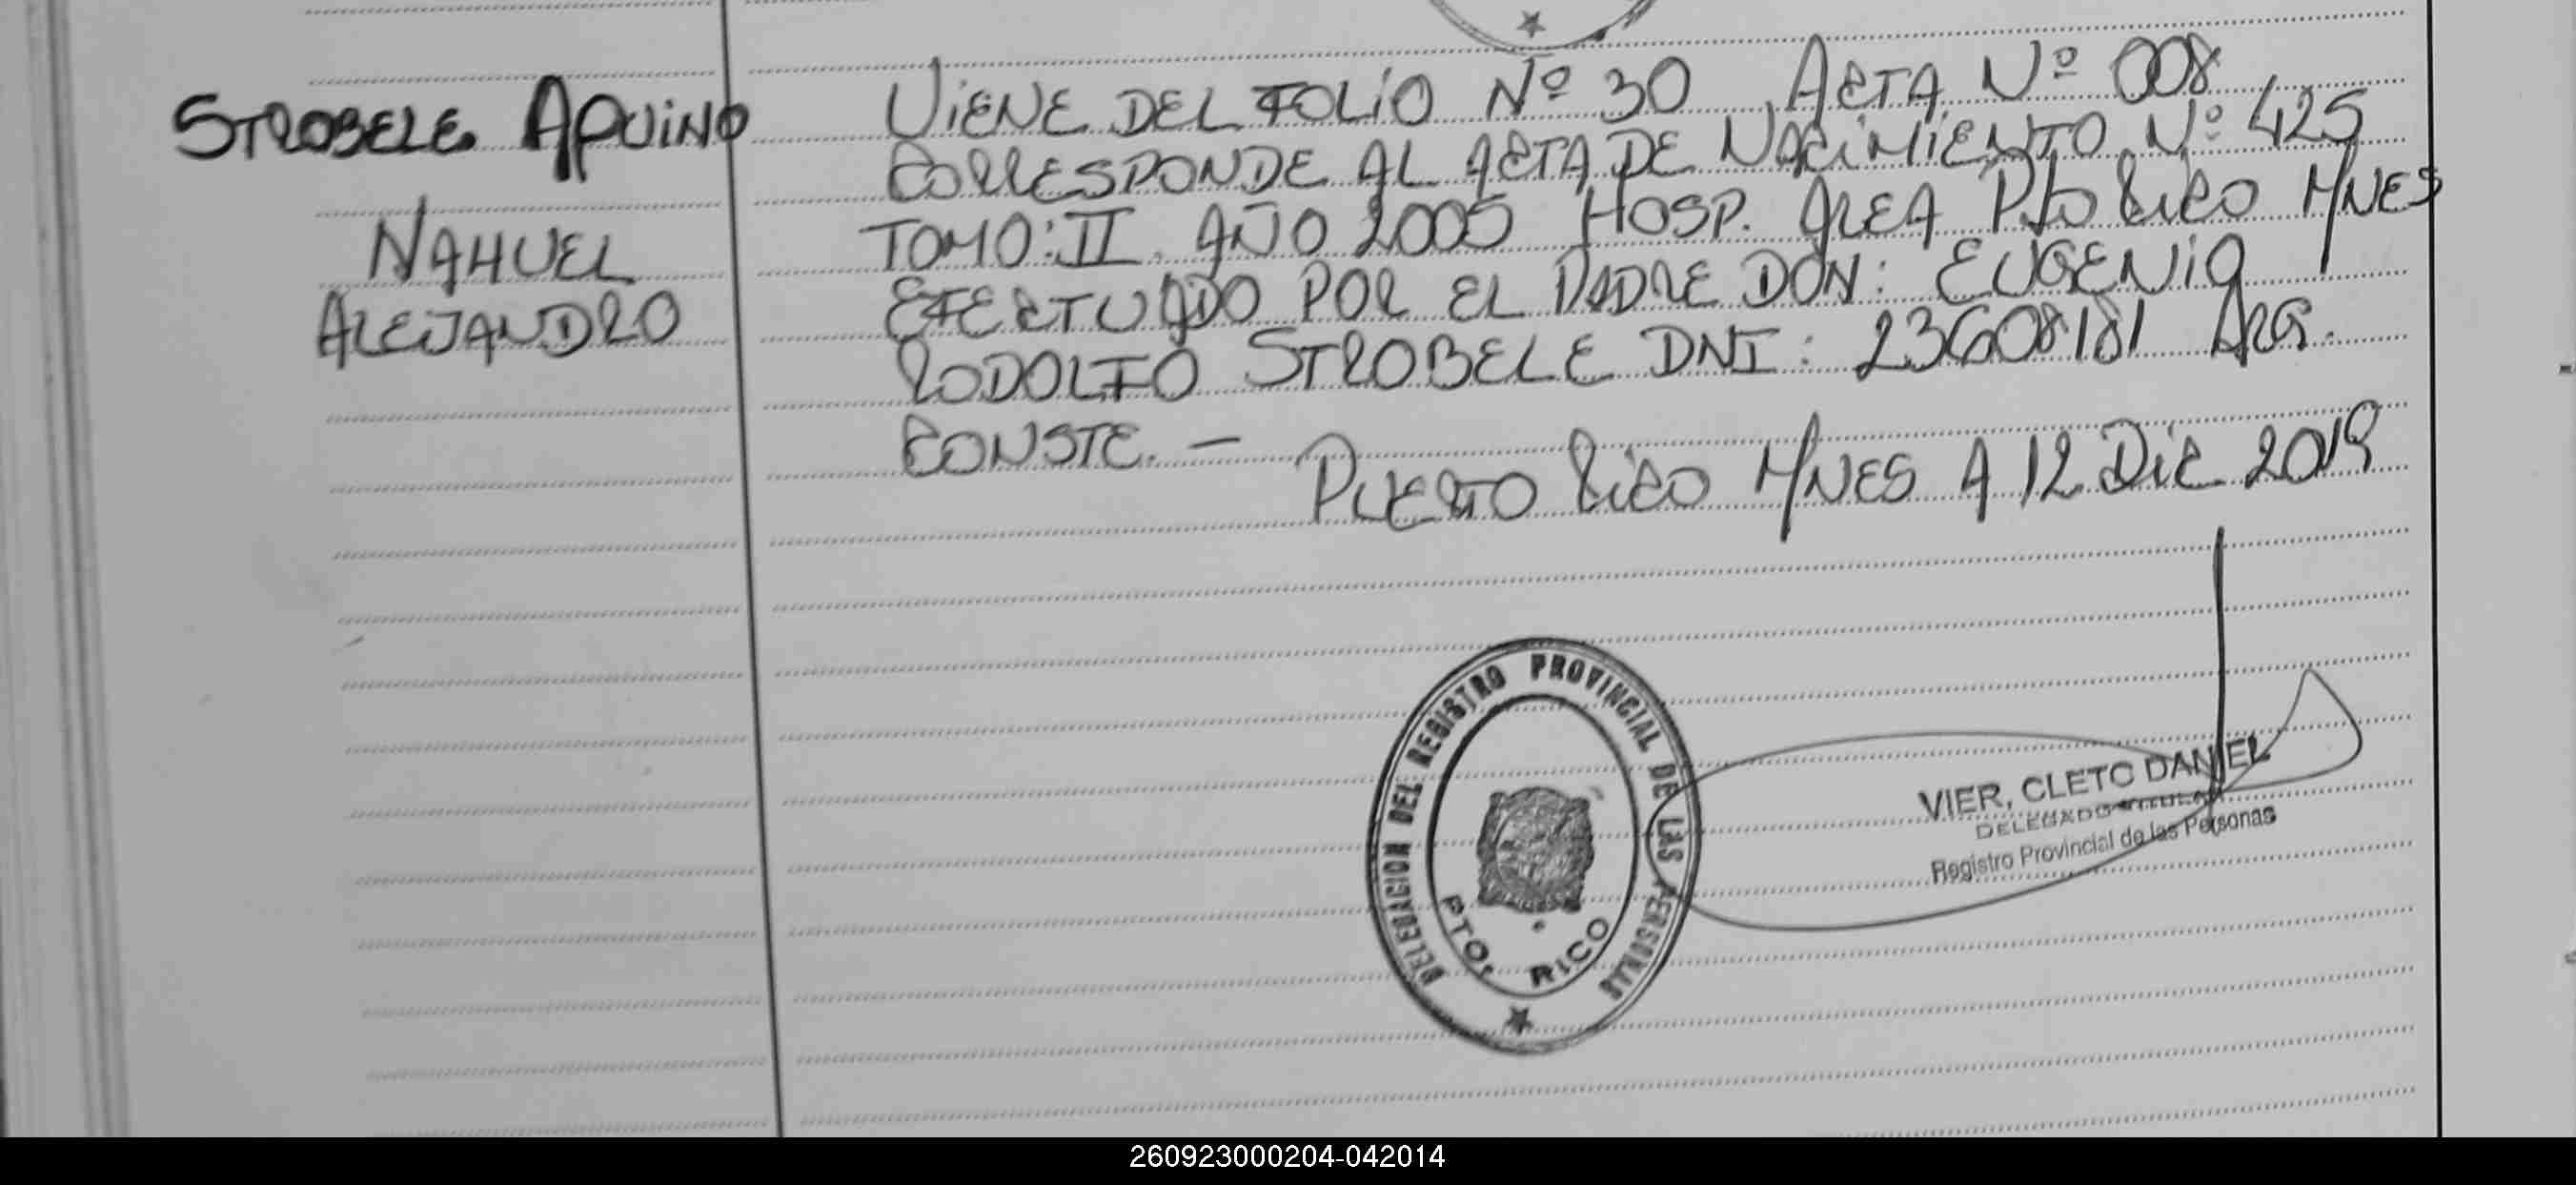 STROBELE APUINO
NAHUEL
ALEJANDRO
VIENE DEL FOLIO Nº 30 ACTA Nº 008
CORRESPONDE AL ACTA DE NACIMIENTO Nº 425
TOMO: II. AÑO 2005 HOSP. AREA PTO RICO M/NES
EFECTUADO POR EL PADRE DON: EUGENIO
RODOLFO STROBELE DNI: 23608181 ARG.
CONSTE. —
PUERTO RICO M/NES A 12 DIC 2019
DELEGACION DEL REGISTRO PROVINCIAL DE LAS PERSONAS
PTO. RICO
VIER, CLETO DANIEL
DELEGADO TITULAR
Registro Provincial de las Personas
260923000204-042014